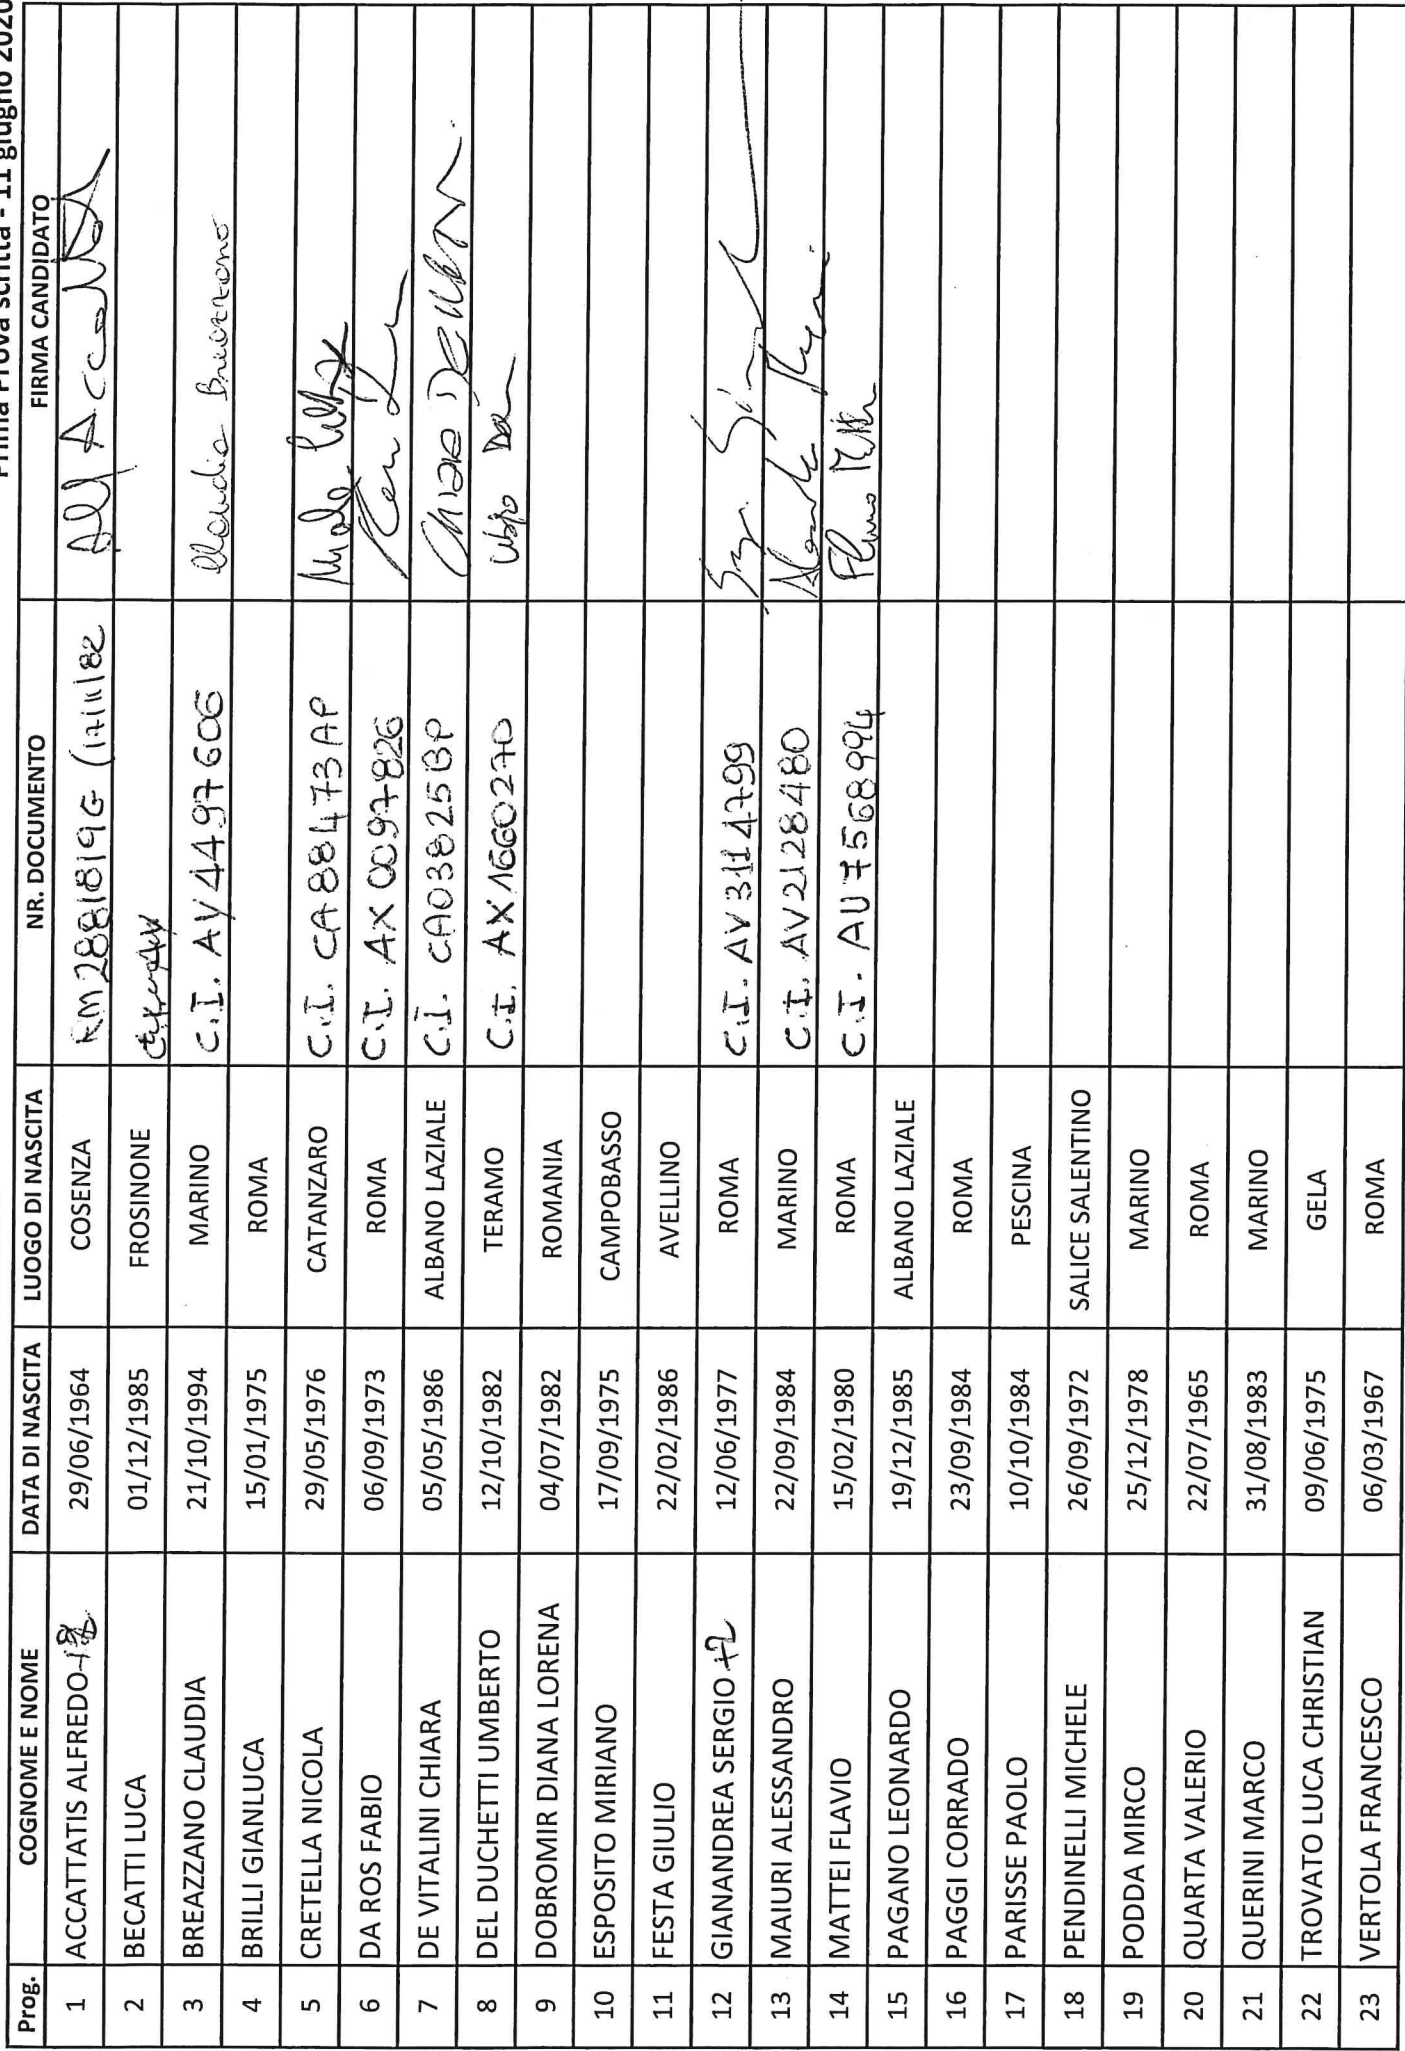 Prima Prova scritta - 11 giugno 2020
Prog. COGNOME E NOME DATA DI NASCITA LUOGO DI NASCITA NR. DOCUMENTO FIRMA CANDIDATO
1 ACCATTATIS ALFREDO 29/06/1964 COSENZA RM2881819G
2 BECATTI LUCA 01/12/1985 FROSINONE
3 BREAZZANO CLAUDIA 21/10/1994 MARINO C.I. AV4497606 Claudia Breazzano
4 BRILLI GIANLUCA 15/01/1975 ROMA
5 CRETELLA NICOLA 29/05/1976 CATANZARO C.I. CA88473AP
6 DA ROS FABIO 06/09/1973 ROMA C.I. AX0097826
7 DE VITALINI CHIARA 05/05/1986 ALBANO LAZIALE C.I. CA03825BP
8 DEL DUCHETTI UMBERTO 12/10/1982 TERAMO C.I. AX1660270
9 DOBROMIR DIANA LORENA 04/07/1982 ROMANIA
10 ESPOSITO MIRIANO 17/09/1975 CAMPOBASSO
11 FESTA GIULIO 22/02/1986 AVELLINO
12 GIANANDREA SERGIO 12/06/1977 ROMA C.I. AV3114799
13 MAIURI ALESSANDRO 22/09/1984 MARINO C.I. AV2128480
14 MATTEI FLAVIO 15/02/1980 ROMA C.I. AU7568994
15 PAGANO LEONARDO 19/12/1985 ALBANO LAZIALE
16 PAGGI CORRADO 23/09/1984 ROMA
17 PARISSE PAOLO 10/10/1984 PESCINA
18 PENDINELLI MICHELE 26/09/1972 SALICE SALENTINO
19 PODDA MIRCO 25/12/1978 MARINO
20 QUARTA VALERIO 22/07/1965 ROMA
21 QUERINI MARCO 31/08/1983 MARINO
22 TROVATO LUCA CHRISTIAN 09/06/1975 GELA
23 VERTOLA FRANCESCO 06/03/1967 ROMA